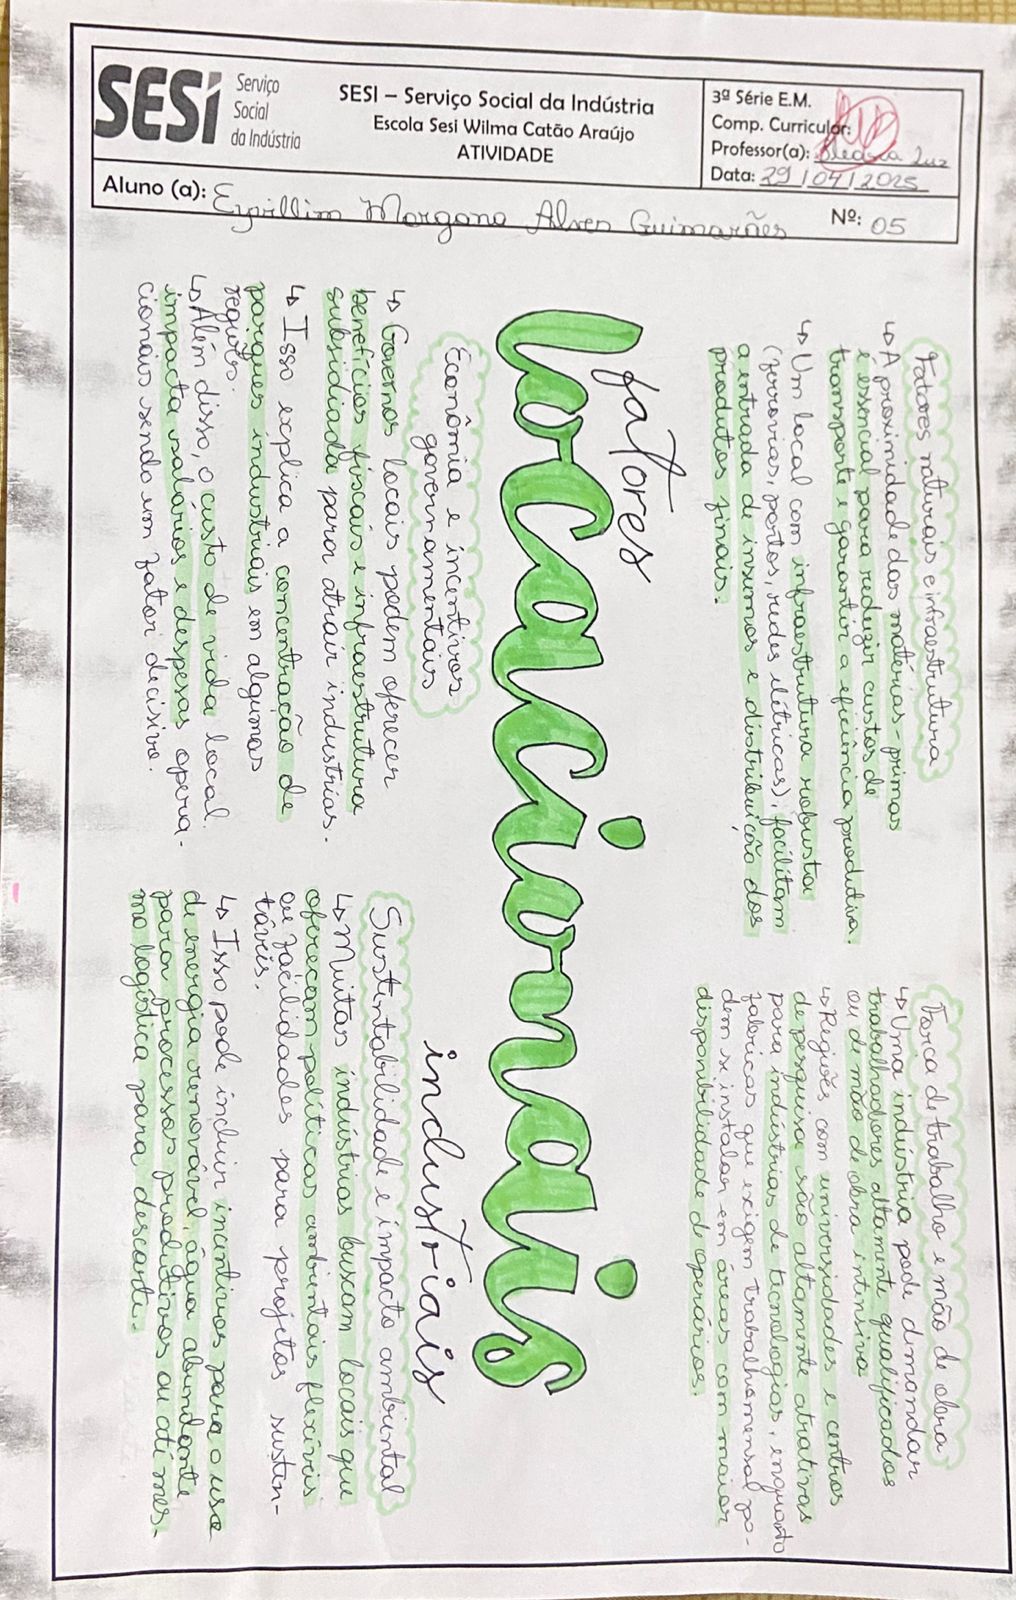 SESI
Serviço
Social
da Indústria
SESI – Serviço Social da Indústria
Escola Sesi Wilma Catão Araújo
ATIVIDADE
3ª Série E.M.
Comp. Curricular:
Professor(a): Luz
Data: 29/04/2025
Aluno (a): Morgana Alves Guimarães Nº: 05
Fatores naturais e infraestrutura
↳ A proximidade das matérias-primas
é essencial para reduzir custos de
transporte e garantir a eficiência produtiva.
↳ Um local com infraestrutura robusta
(ferrovias, portos, redes elétricas), facilitam
a entrada de insumos e distribuição dos
produtos finais.
Força de trabalho e mão de obra
↳ Uma indústria pode demandar
trabalhadores altamente qualificados
ou de mão de obra intensiva
↳ Regiões com universidades e centros
de pesquisa são altamente atrativas
para indústrias de tecnologias, enquanto
fabricas que exigem trabalho mensal po-
dem se instalar em áreas com maior
disponibilidade de operários.
fatores
locacionais
industriais
Econômia e incentivos
governamentais
↳ Governos locais podem oferecer
benefícios fiscais e infraestrutura
subsidiada para atrair industrias.
↳ Isso explica a concentração de
parques industriais em algumas
regiões.
↳ Além disso, o custo de vida local
impacta salários e despesas opera-
cionais sendo um fator decisivo.
Sustentabilidade e impacto ambiental
↳ Muitas indústrias buscam locais que
ofereçam políticas ambientais flexíveis
ou facilidades para projetos susten-
táveis.
↳ Isso pode incluir incentivos para o uso
de energia renovável, água abundante
para processos produtivos ou até mes-
mo logística para descarte.